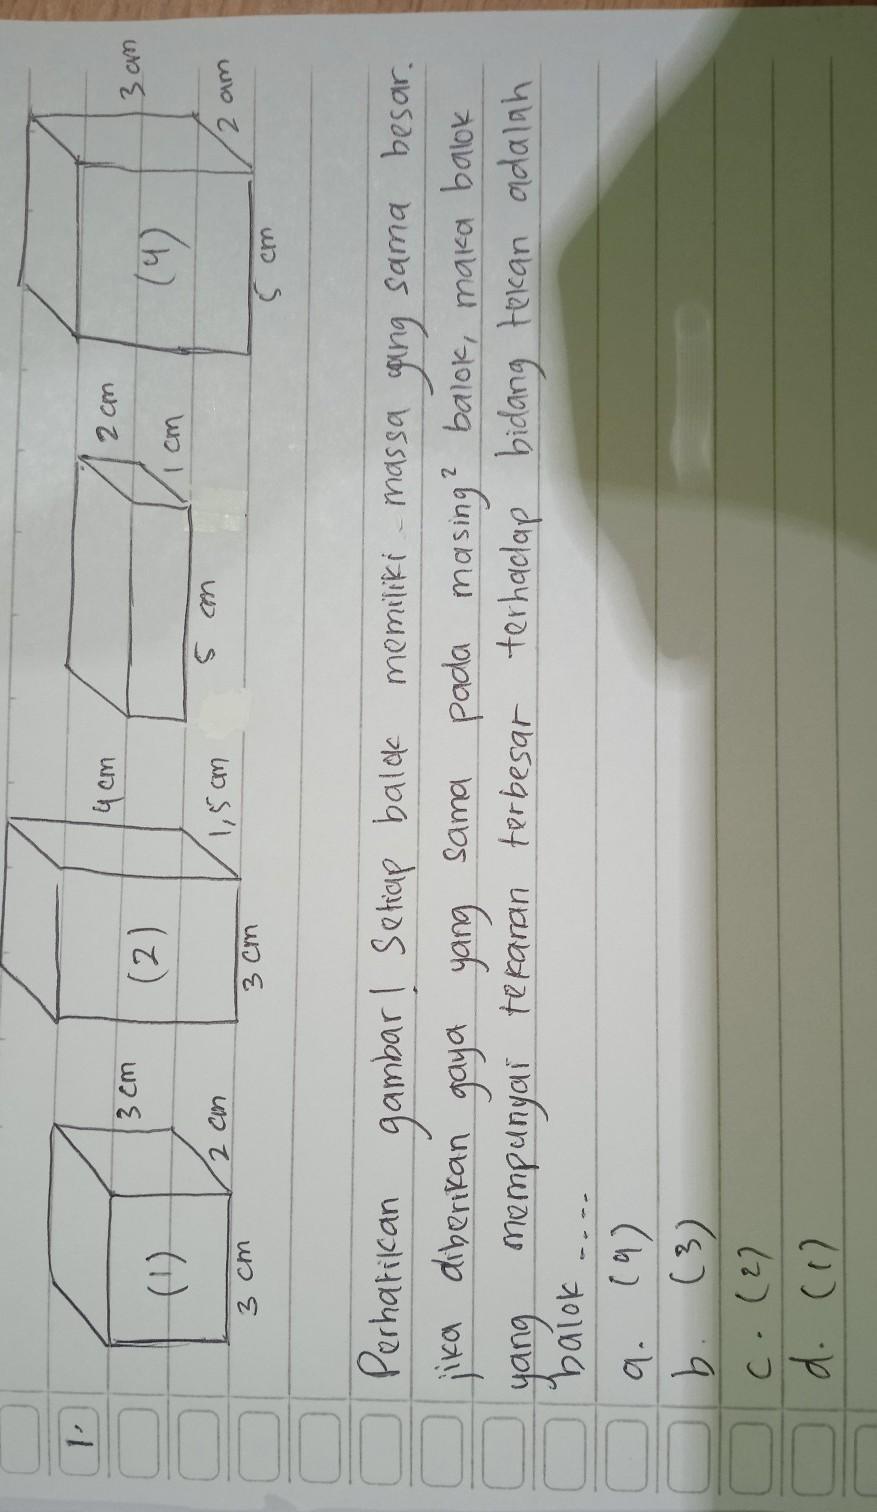 1.
(1) 3 cm 2 cm 3 cm
(2) 3 cm 1,5 cm 4 cm
5 cm 1 cm 2 cm
(4) 5 cm 2 cm 3 cm
Perhatikan gambar! Setiap balok memiliki massa yang sama besar.
jika diberikan gaya yang sama pada masing² balok, maka balok
yang mempunyai tekanan terbesar terhadap bidang tekan adalah
balok ....
a. (4)
b. (3)
c. (2)
d. (1)